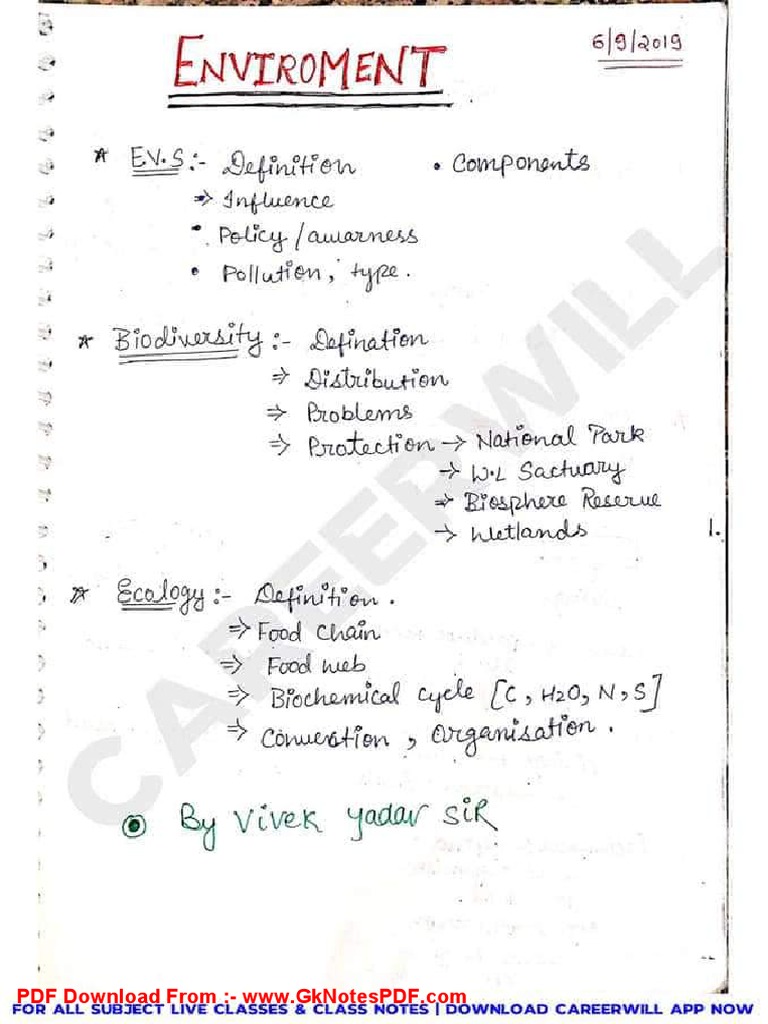 6/9/2019
ENVIROMENT
* EV.S :- Definition • Components
⇒ Influence
• Policy/awarness
• Pollution, type.
* Biodiversity :- Defination
⇒ Distribution
⇒ Problems
⇒ Protection → National Park
→ W.L Sactuary
⇒ Biosphere Reserve
→ Wetlands 1.
* Ecology :- Definition.
⇒ Food Chain
⇒ Food web
⇒ Biochemical cycle [C, H2O, N, S]
⇒ Convention, Organisation.
By Vivek Yadav SIR
CAREERWILL
PDF Download From :- www.GkNotesPDF.com
FOR ALL SUBJECT LIVE CLASSES & CLASS NOTES | DOWNLOAD CAREERWILL APP NOW